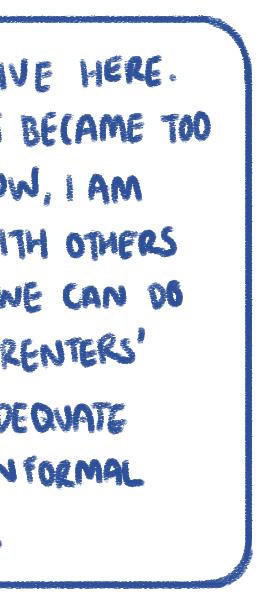 IVE HERE.
BECAME TOO
OW, I AM
ITH OTHERS
WE CAN DO
RENTERS'
DEQUATE
NFORMAL